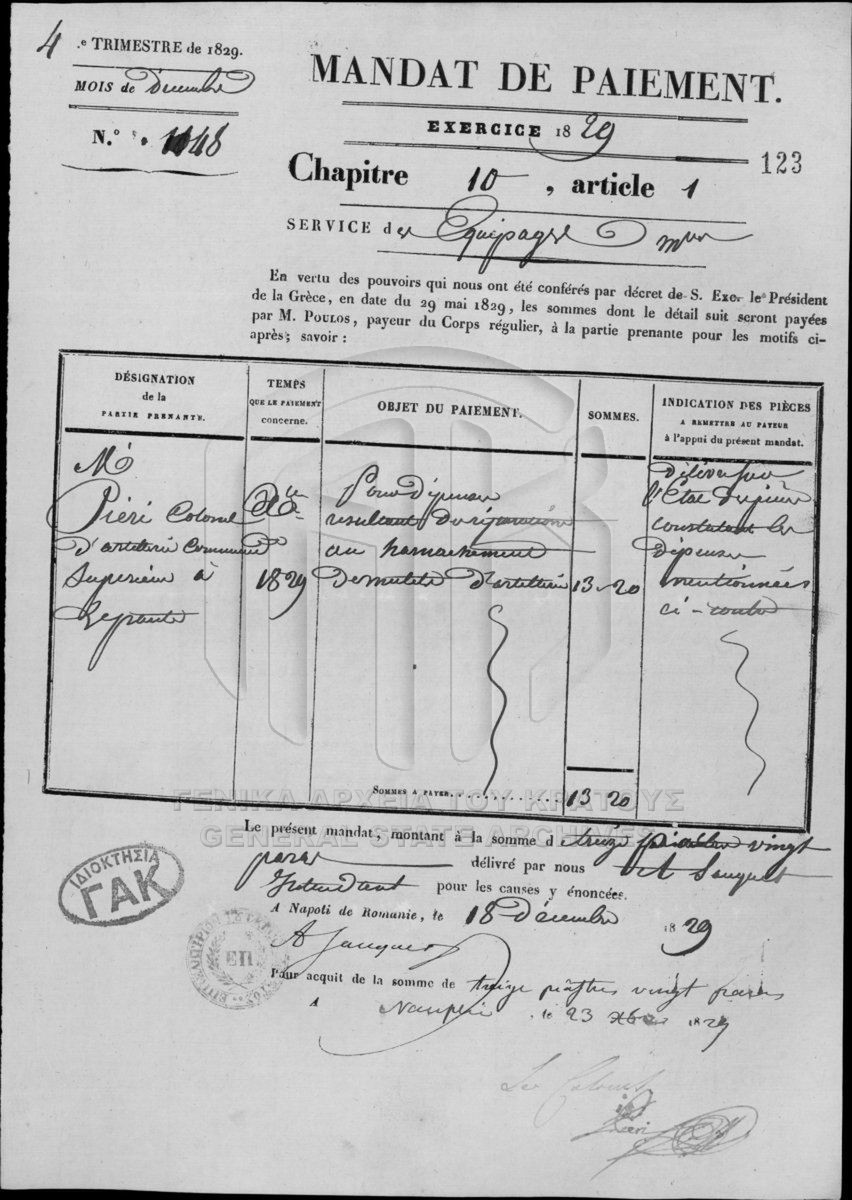 4 .e TRIMESTRE de 1829.
MOIS de Décembre
N.º 1148
MANDAT DE PAIEMENT.
EXERCICE 1829
123
Chapitre 10, article 1
SERVICE des Equipages
En vertu des pouvoirs qui nous ont été conférés par décret de S. Exc. le Président
de la Grèce, en date du 29 mai 1829, les sommes dont le détail suit seront payées
par M. POULOS, payeur du Corps régulier, à la partie prenante pour les motifs ci-
après; savoir :
DÉSIGNATION
de la
PARTIE PRENANTE.
TEMPS
QUE LE PAIEMENT
concerne.
OBJET DU PAIEMENT.
SOMMES.
INDICATION DES PIÈCES
A REMETTRE AU PAYEUR
à l'appui du présent mandat.
Mr
Piéri Colonel
d'artillerie Commandt
Supérieur à
Lépante
Xbre
1829
Pour dépenses
résultant de réparations
au harnachement
de mulets d'artillerie
13 20
l'Etat
constatant les
dépenses
mentionnées
ci-contre
SOMMES A PAYER. 13 20
ΓΕΝΙΚΑ ΑΡΧΕΙΑ ΤΟΥ ΚΡΑΤΟΥΣ
GENERAL STATE ARCHIVES
Le présent mandat, montant à la somme de treize piastres vingt
paras délivré par nous
Intendant pour les causes y énoncées.
A Napoli de Romanie, le 18 Décembre 1829
ΙΔΙΟΚΤΗΣΙΑ
ΓΑΚ
ΕΠ
Pour acquit de la somme de treize piastres vingt paras
A Nauplie, le 23 Xbre 1829
Le Colonel
Pieri